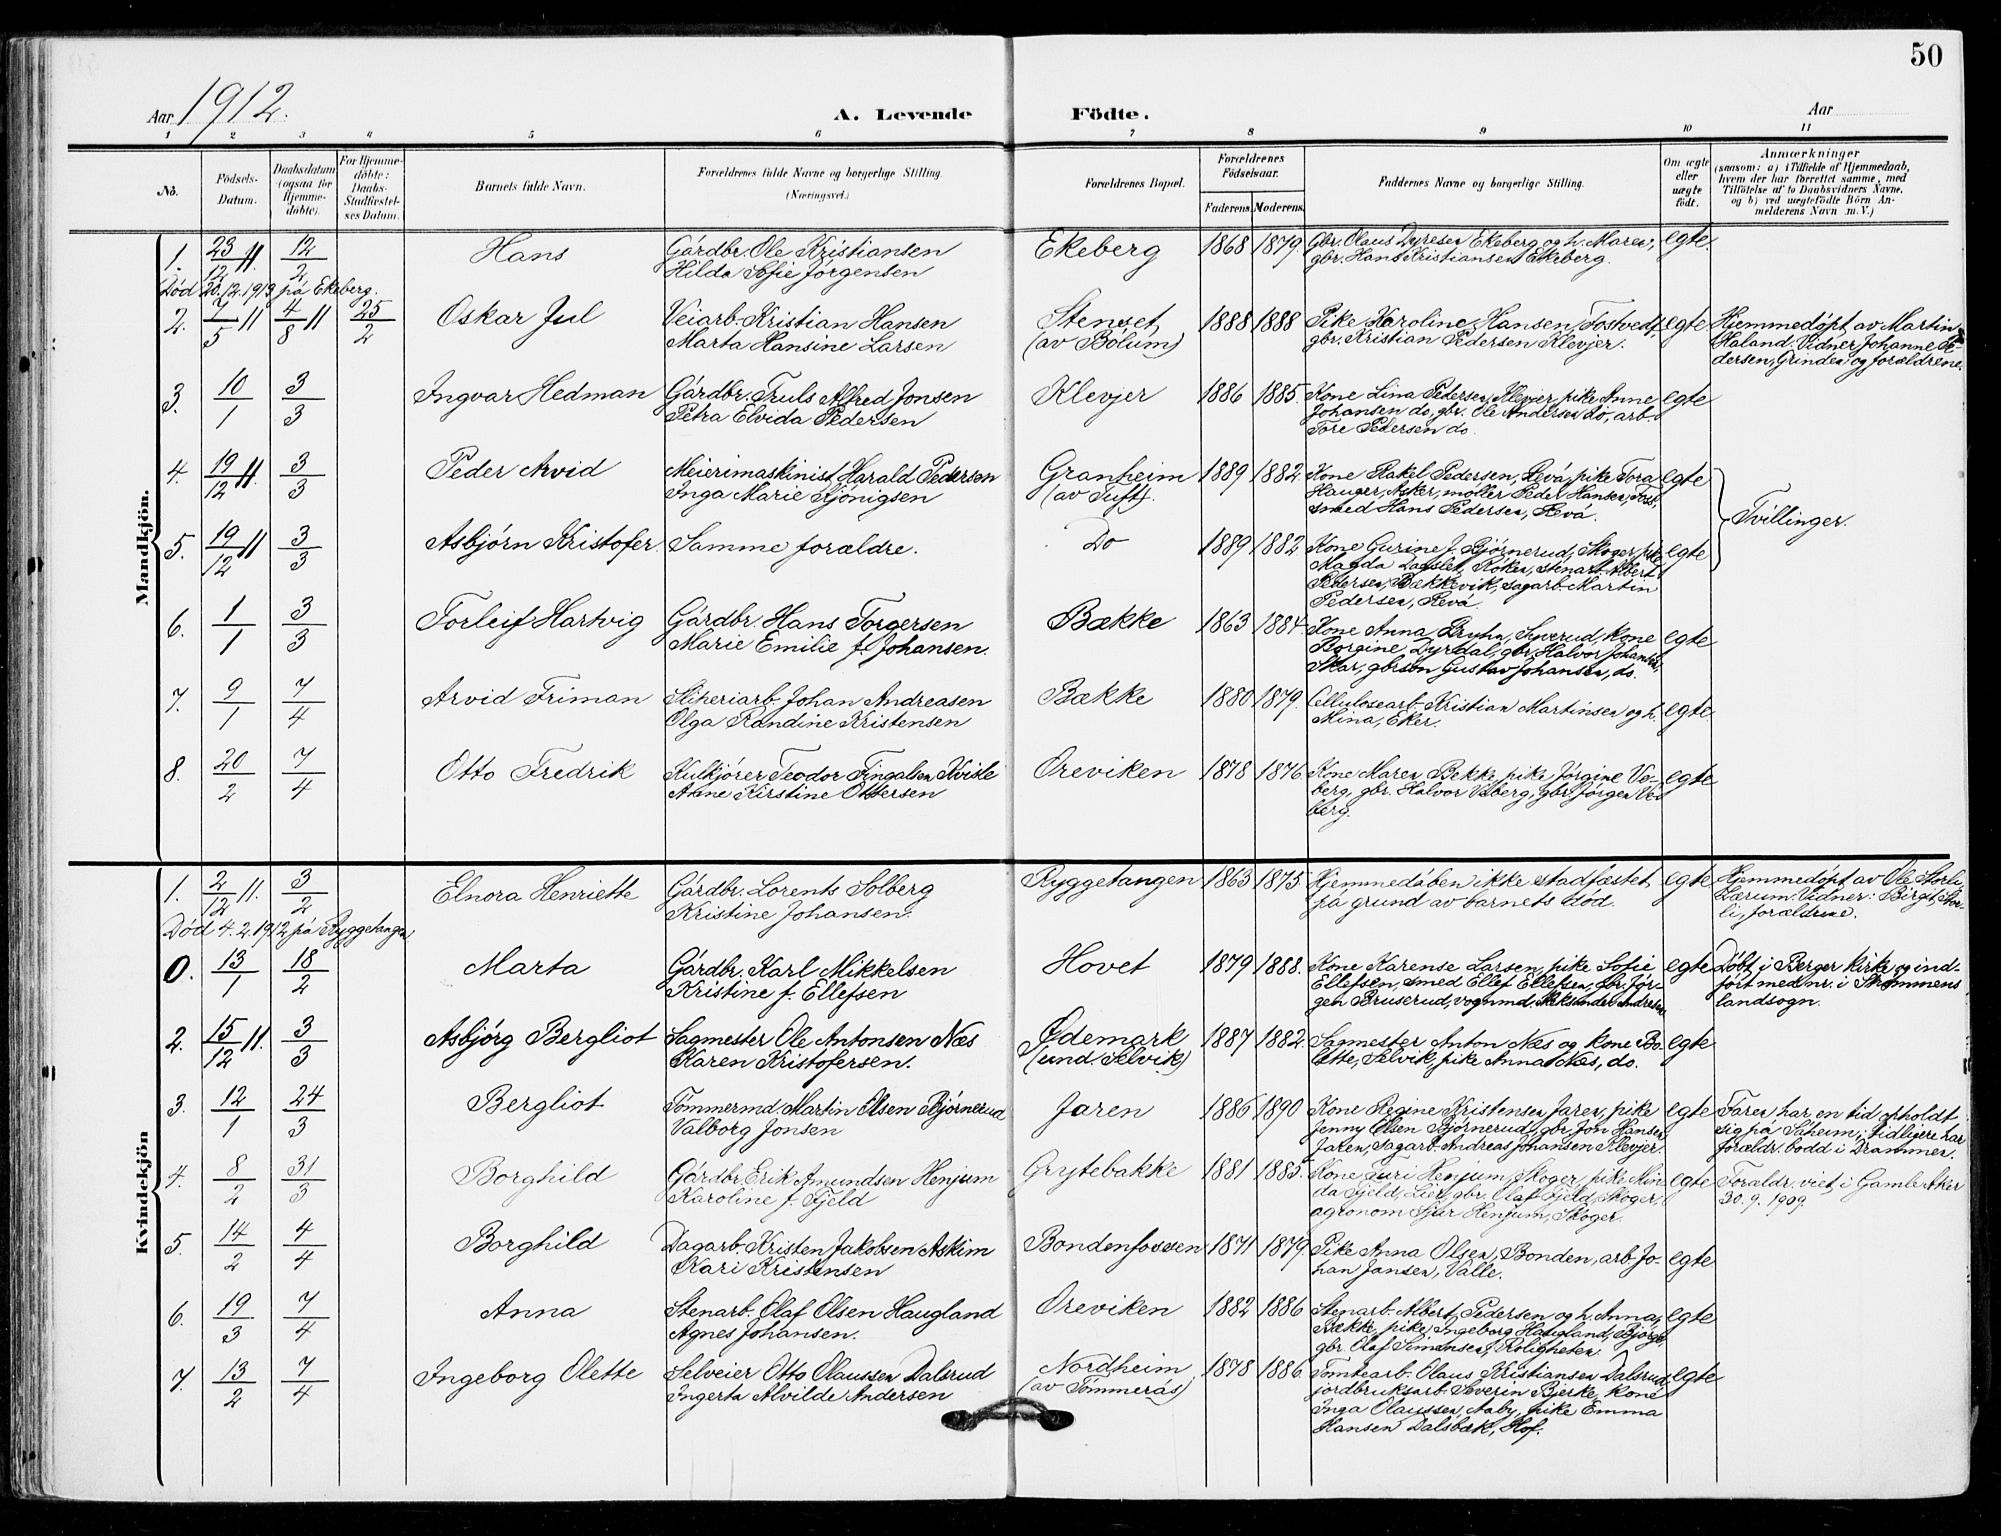 50
Aar 1912.
A. Levende Födte.
Aar
1 2 3 4 5 6 7 8 9 10 11
No.
Födsels-Datum.
Daabsdatum (ogsaa for Hjemmedöbte).
For Hjemmedöbte: Daabs-Stadfæstelses Datum.
Barnets fulde Navn.
Forældrenes fulde Navne og borgerlige Stilling.
(Næringsvei.)
Forældrenes Bopæl.
Forældrenes Födselsaar.
Faderens. Moderens.
Faddernes Navne og borgerlige Stilling.
Om ægte eller uægte født.
Anmærkninger
(saasom: a) i Tilfælde af Hjemmedaab, hvem der har forrettet samme, med Tilföielse af to Daabsvidners Navne. og b) ved uægtefödte Börn Anmelderens Navn m.V.)
Mandkjön.
1. 23/12 11. 12/2 Hans Gårdbr. Ole Kristiansen Ekeberg 1868 1879. Gbr. Olaus Dyresen Ekeberg og h. Maren, egte.
Hilda Sofie Jørgensen gbr. Hans Kristiansen Ekeberg.
Død 20.12.1913 på Ekeberg.
2. 7/5 11 4/8 11 25/2 Oskar Jul Veiarb. Kristian Hansen Stenset 1888 1888 Pike Karoline Hansen, Tostvedt, egte Hjemmedøpt av Martin
Marta Hansine Larsen (av Bolum) gbr. Kristian Pedersen Klevjer. Haland. Vidner Johanne Pe-
dersen, Grinden og forældrene.
3. 10/1 3/3 Ingvar Hedman Gårdbr. Truls Alfred Jonsen Klevjer 1886 1885. Kone Lina Pedersen, Klevjer, pike Anne egte
Petra Elvida Pedersen Johansen do, gbr. Ole Andersen do, arb.
Tore Pedersen do.
4. 19/12 11. 3/3 Peder Arvid Meierimaskinist Harald Pedersen Granheim 1889 1882. Kone Rakel Pedersen, Revå, pike Tora egte
Inga Marie Sjönigsen (av Tuft). Hauger, Asker, møller Peder Hansen,
smed Hans Pedersen, Revå.
Tvillinger.
5. 19/12 11 3/3 Asbjørn Kristofer. Samme forældre. Do 1889 1882 Kone Gurine J. Bjørnerud, Skoger, pike egte
Magda Røken, stenarb. Albert
Pedersen, Bækkevik, sagarb. Martin
Pedersen, Revå.
6. 1/1 3/3 Torleif Hartvig Gårdbr. Hans Torgersen Bække 1863 1884. Kone Anna Bruhn, Syverud, kone egte
Marie Emilie f. Johansen. Borgine Dyrdal, gbr. Halvor Johansen,
Skar, gbrsøn Gustav Johansen, do.
7. 9/1 7/4 Arvid Friman Sliperiarb. Johan Andreasen Bække 1880 1879. Cellulosearb. Kristian Martinsen og h. egte
Olga Randine Kristensen Mina, Eker.
8. 20/2 7/4 Otto Fredrik Kulkjører Teodor Fingalsen Kvisle Oreviken 1878 1876 Kone Maren Bekke, pike Jørgine Ve- egte
Anne Kirstine Ottersen berg, gbr. Halvor Veberg, gbr. Jørgen Ve-
berg.
Kvindekjön
1. 2/12 11. 3/2 Elnora Henriette Gårdbr. Lorents Solberg Ryggetangen 1863 1875. Hjemmedåben ikke stadfæstet egte Hjemmedøpt av Ole Storli
Kristine Johansen. på grund av barnets död. Bærum. Vidner: Birgit Stor-
Død 4.2.1912 på Ryggetangen li, forældrene.
0. 13/1 18/2 Marta Gårdbr. Karl Mikkelsen Hovet 1879 1888. Kone Karense Larsen, pike Sofie egte Døbt i Berger kirke og ind-
Kristine f. Ellefsen Ellefsen, smed Ellef Ellefsen, gbr. Jør- ført med nr. i Strømmens
gen Bruserud, vognmd. Aleksander Andresen landsogn.
2. 15/12 11. 3/3 Asbjørg Bergliot Sagmester Ole Antonsen Næs Ødemark 1887 1882. Sagmester Anton Næs og kone Bo- egte
Karen Kristofersen. (und. Selvik) lette, Selvik, pike Anna Næs, do.
3. 12/1 24/3 Bergliot Tömmermd. Martin Olsen Bjørnerud Jaren 1886 1890 Kone Regine Kristensen Jaren, pike egte Faren har en tid opholdt
Valborg Jonsen Jenny Olsen Bjørnerud, gbr. Jon Hansen sig på Såheim; tidligere har
Jaren, sagarb. Andreas Johansen Klevjer. forældr. bodd i Drammen.
4. 8/2 31/3 Borghild Gårdbr. Erik Amundsen Henjum Grytebakke 1881 1885. Kone Turi Henjum, Skoger, pike Min- egte Forældr. viet i Gamle Aker
Karoline f. Fjeld da Fjeld, Lier, gbr. Olaf Fjeld, Skoger, 30.9.1909.
agronom Sjur Henjum, Skoger.
5. 14/2 4/4 Borghild Dagarb. Kristen Jakobsen Askim Bondenfossen 1871 1879 Pike Anna Olsen, Bonden, arb. Jo- egte
Kari Kristensen han Jansen, Valle.
6. 19/3 7/4 Anna Stenarb. Olaf Olsen Haugland Oreviken 1882 1886 Stenarb. Albert Pedersen og h. Anna, egte
Agnes Johansen. Bække, pike Ingeborg Haugland, Bjørge,
gbr. Olaf Simensen, Roligheten.
7. 13/2 7/4 Ingeborg Olette Selveier Otto Olaussen Dalsrud Nordheim 1878 1886. Tomtearb. Olaus Kristiansen Dalsrud, egte
Ingerta Alvilde Andersen (av Tömmerås) jordbruksarb. Severin Bjerke, kone
Inga Olaussen, Aaby, pike Emma
Hansen Dalsbæk, Hof.